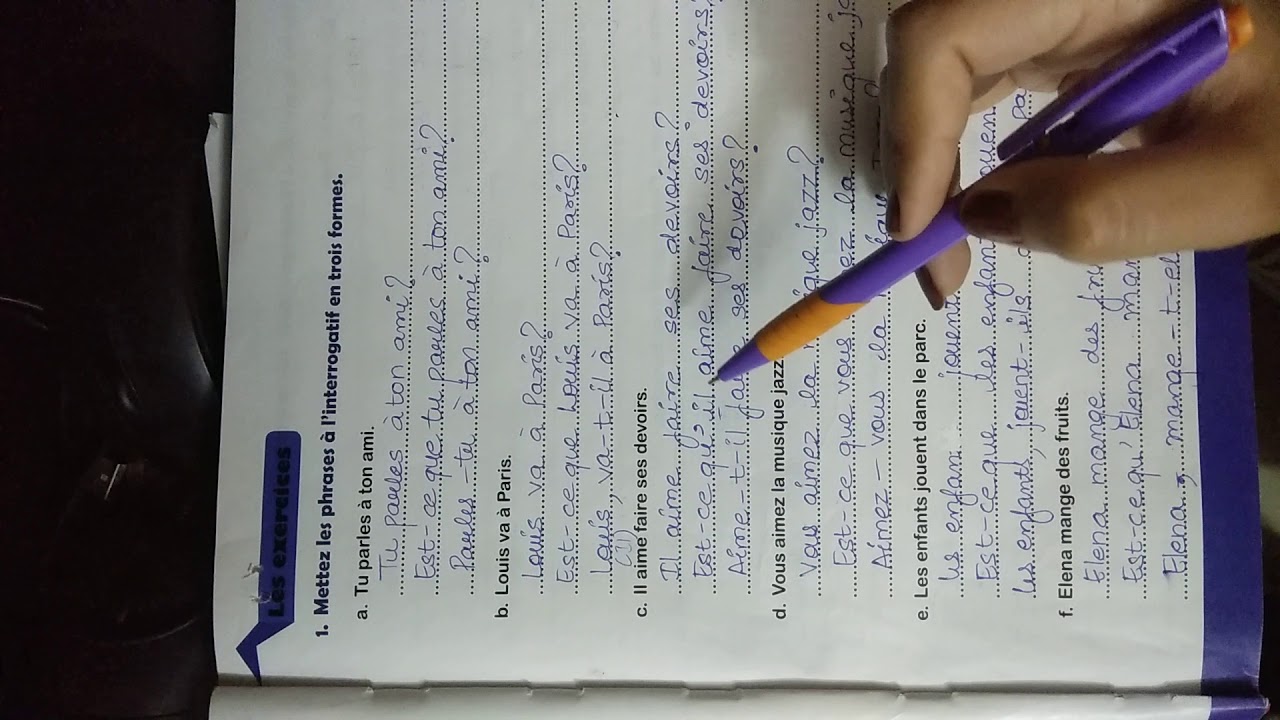 Les exercices
1. Mettez les phrases à l'interrogatif en trois formes.
a. Tu parles à ton ami.
Tu parles à ton ami?
Est-ce que tu parles à ton ami?
Parles-tu à ton ami?
b. Louis va à Paris.
Louis va à Paris?
Est-ce que Louis va à Paris?
Louis, va-t-il à Paris?
c. Il aime faire ses devoirs.
Il aime faire ses devoirs?
Est-ce qu'il aime faire ses devoirs?
Aime-t-il ses devoirs?
d. Vous aimez la musique jazz
Vous aimez la jazz?
Est-ce que vous la musique
Aimez-vous la
e. Les enfants jouent dans le parc.
les enfant jouent
Est-ce que les
les enfants, jouent-ils
f. Elena mange des fruits.
Elena mange des
Est-ce qu'Elena
Elena, mange-t-el